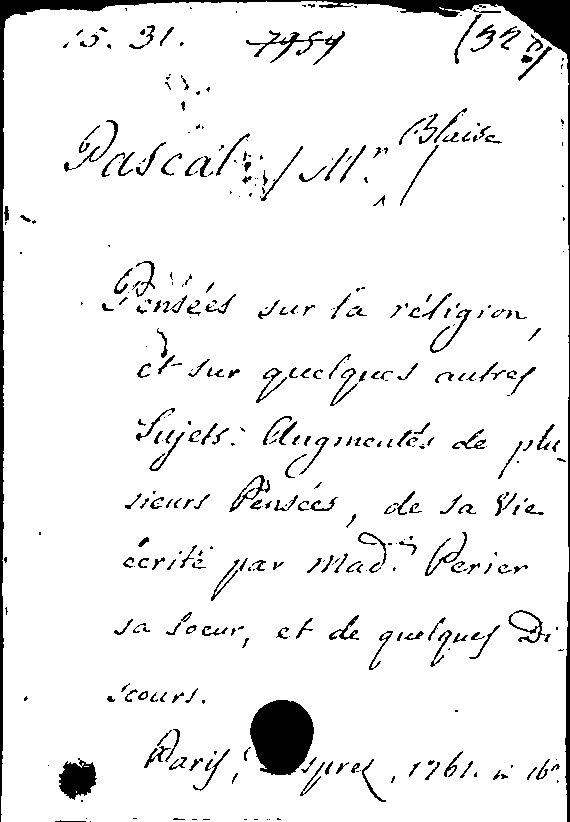 15. 31. 7959 (32
Pascal / Mr. / Blaise
Pensées sur la réligion,
et sur quelques autres
Sujets: Augmentés de plu-
sieurs Pensées, de sa Vie
écrite par Mad.e Perier
sa Soeur, et de quelques Di-
scours.
Paris, 1761. in 16o.